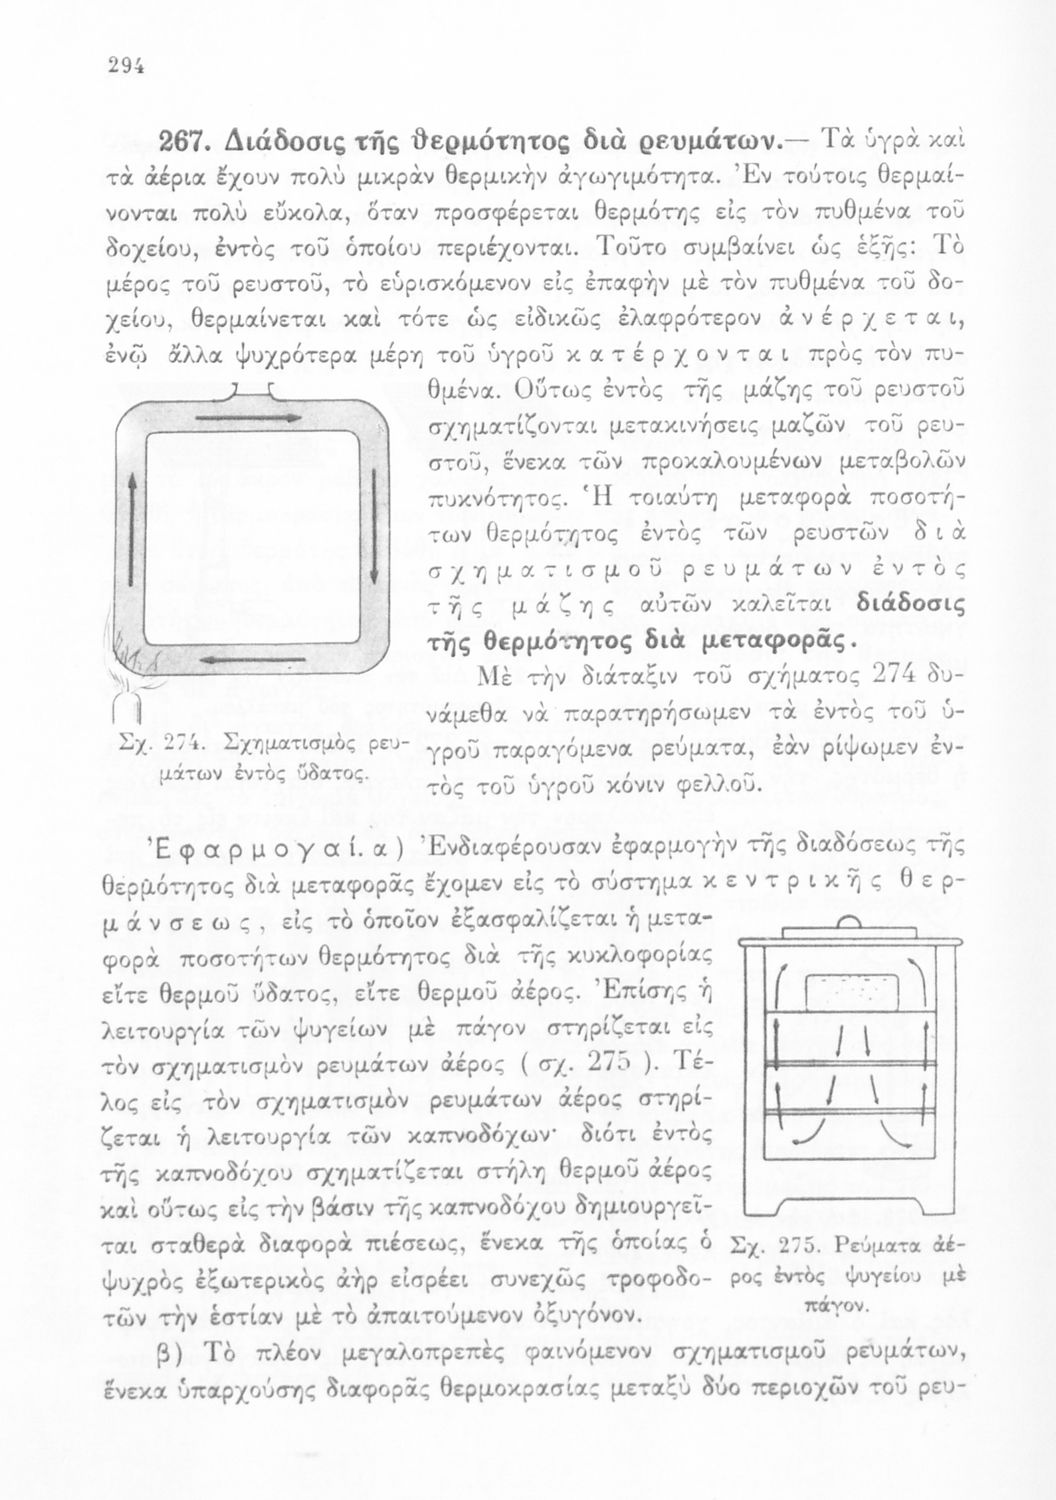 294
267. Διάδοσις τῆς θερμότητος διὰ ρευμάτων.— Τὰ ὑγρὰ καὶ
τὰ ἀέρια ἔχουν πολὺ μικρὰν θερμικὴν ἀγωγιμότητα. Ἐν τούτοις θερμαί-
νονται πολὺ εὔκολα, ὅταν προσφέρεται θερμότης εἰς τὸν πυθμένα τοῦ
δοχείου, ἐντὸς τοῦ ὁποίου περιέχονται. Τοῦτο συμβαίνει ὡς ἑξῆς: Τὸ
μέρος τοῦ ρευστοῦ, τὸ εὑρισκόμενον εἰς ἐπαφὴν μὲ τὸν πυθμένα τοῦ δο-
χείου, θερμαίνεται καὶ τότε ὡς εἰδικῶς ἐλαφρότερον ἀ ν έ ρ χ ε τ α ι,
ἐνῷ ἄλλα ψυχρότερα μέρη τοῦ ὑγροῦ κ α τ έ ρ χ ο ν τ α ι πρὸς τὸν πυ-
θμένα. Οὕτως ἐντὸς τῆς μάζης τοῦ ρευστοῦ
σχηματίζονται μετακινήσεις μαζῶν τοῦ ρευ-
στοῦ, ἕνεκα τῶν προκαλουμένων μεταβολῶν
πυκνότητος. Ἡ τοιαύτη μεταφορὰ ποσοτή-
των θερμότητος ἐντὸς τῶν ρευστῶν δ ι ὰ
σ χ η μ α τ ι σ μ ο ῦ ρ ε υ μ ά τ ω ν ἐ ν τ ὸ ς
τ ῆ ς μ ά ζ η ς αὐτῶν καλεῖται διάδοσις
τῆς θερμότητος διὰ μεταφορᾶς.
Μὲ τὴν διάταξιν τοῦ σχήματος 274 δυ-
νάμεθα νὰ παρατηρήσωμεν τὰ ἐντὸς τοῦ ὑ-
γροῦ παραγόμενα ρεύματα, ἐὰν ρίψωμεν ἐν-
τὸς τοῦ ὑγροῦ κόνιν φελλοῦ.
Σχ. 274. Σχηματισμὸς ρευ-
μάτων ἐντὸς ὕδατος.
Ἐ φ α ρ μ ο γ α ί. α ) Ἐνδιαφέρουσαν ἐφαρμογὴν τῆς διαδόσεως τῆς
θερμότητος διὰ μεταφορᾶς ἔχομεν εἰς τὸ σύστημα κ ε ν τ ρ ι κ ῆ ς θ ε ρ-
μ ά ν σ ε ω ς , εἰς τὸ ὁποῖον ἐξασφαλίζεται ἡ μετα-
φορὰ ποσοτήτων θερμότητος διὰ τῆς κυκλοφορίας
εἴτε θερμοῦ ὕδατος, εἴτε θερμοῦ ἀέρος. Ἐπίσης ἡ
λειτουργία τῶν ψυγείων μὲ πάγον στηρίζεται εἰς
τὸν σχηματισμὸν ρευμάτων ἀέρος ( σχ. 275 ). Τέ-
λος εἰς τὸν σχηματισμὸν ρευμάτων ἀέρος στηρί-
ζεται ἡ λειτουργία τῶν καπνοδόχων· διότι ἐντὸς
τῆς καπνοδόχου σχηματίζεται στήλη θερμοῦ ἀέρος
καὶ οὕτως εἰς τὴν βάσιν τῆς καπνοδόχου δημιουργεῖ-
ται σταθερὰ διαφορὰ πιέσεως, ἕνεκα τῆς ὁποίας ὁ
ψυχρὸς ἐξωτερικὸς ἀὴρ εἰσρέει συνεχῶς τροφοδο-
τῶν τὴν ἑστίαν μὲ τὸ ἀπαιτούμενον ὀξυγόνον.
Σχ. 275. Ρεύματα ἀέ-
ρος ἐντὸς ψυγείου μὲ
πάγον.
β) Τὸ πλέον μεγαλοπρεπὲς φαινόμενον σχηματισμοῦ ρευμάτων,
ἕνεκα ὑπαρχούσης διαφορᾶς θερμοκρασίας μεταξὺ δύο περιοχῶν τοῦ ρευ-